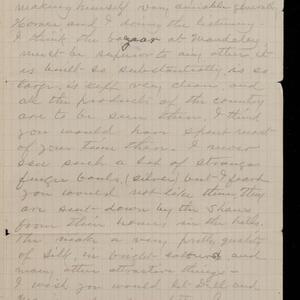 making himself very amiable generally
Horace and I doing the listening
I think the bazaar at Mandalay
must be superior to any other it
is built so substantially is so
large is kept very clean, and
all the products of the country
are to be seen there. I think
you would have spent most
of your time there. I never
saw such a lot of strange
finger bowls, (silver) but I fear
you would not like them. They
are sent down by the Shans
from their homes in the hills.
They make a very pretty quality
of silk, in bright colours and
many other attractive things -
I wish you would let Will and